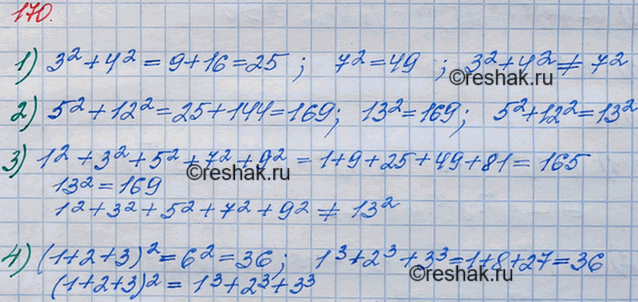 170.
1) 3² + 4² = 9 + 16 = 25 ; 7² = 49 ; 3² + 4² ≠ 7²
©reshak.ru
2) 5² + 12² = 25 + 144 = 169; 13² = 169; 5² + 12² = 13²
3) 1² + 3² + 5² + 7² + 9² = 1 + 9 + 25 + 49 + 81 = 165
©reshak.ru
13² = 169
1² + 3² + 5² + 7² + 9² ≠ 13²
4) (1+2+3)² = 6² = 36; 1³ + 2³ + 3³ = 1 + 8 + 27 = 36
©reshak.ru
(1+2+3)² = 1³ + 2³ + 3³